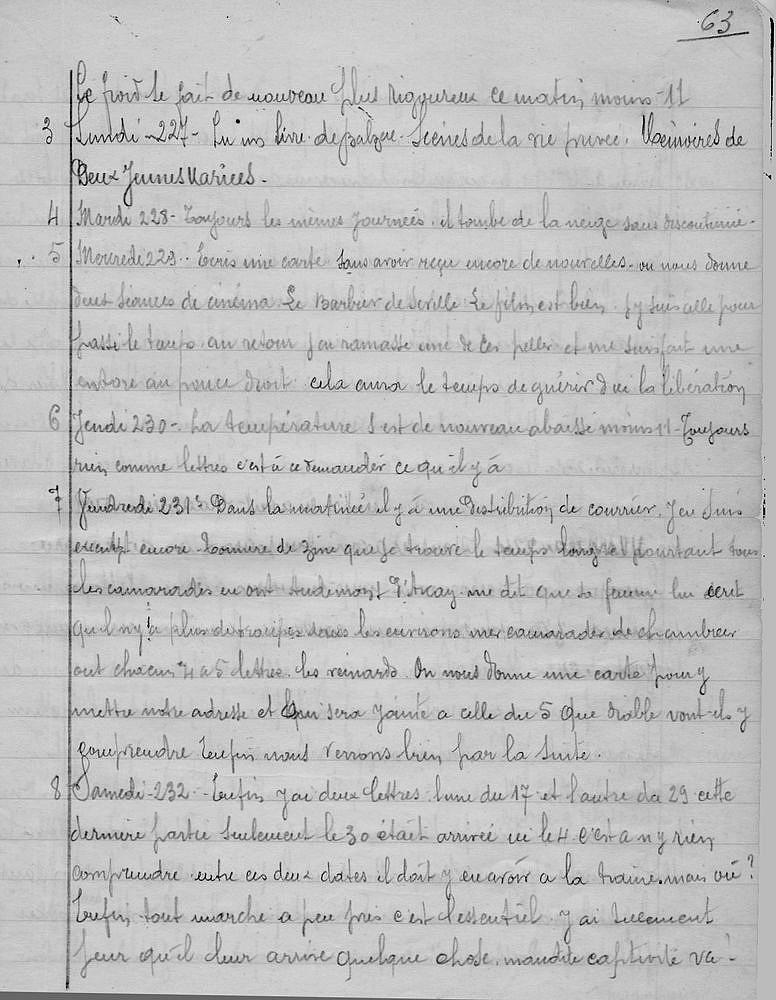 63
Le froid se fait de nouveau plus rigoureux ce matin moins -11
3 Lundi -227- Lu un livre de Balzac. Scènes de la vie privée. Mémoires de
Deux Jeunes Mariées.
4 Mardi 228- Toujours les mêmes journées. il tombe de la neige sans discontinué.
5 Mercredi 229. Écris une carte sans avoir reçu encore de nouvelles. on nous donne
deux séances de cinéma Le Barbier de Séville Le film est bien. J'y suis allé pour
passé le temps. au retour j'ai ramassé une de ces pelles et me suis fait une
entorse au pouce droit. cela aura le temps de guérir d'ici la libération
6 Jeudi 230- La température s'est de nouveau abaissé moins 11 - Toujours
rien comme lettres c'est à ce demander ce qu'il y à
7 Vendredi 231 Dans la matinée il y à une distribution de courrier. J'en suis
exempt encore tonnerre de zine que je trouve le temps long et pourtant tous
les camarades en ont me dit que sa femme lui écrit
qu'il n'y à plus de troupes dans les environs mes camarades de chambrée
ont chacun 4 a 5 lettres. les veinards. On nous donne une carte pour y
mettre notre adresse et qui sera jointe a celle du 5 Que diable vont-ils y
comprendre Enfin nous verrons bien par la suite.
8 Samedi -232- Enfin j'ai deux lettres lune du 17 et l'autre du 29 cette
dernière partie seulement le 30 était arrivée ici le 4 c'est a n'y rien
comprendre entre ces deux dates il doit y en avoir a la traine. mais où ?
Enfin tout marche a peu près c'est l'essentiel. J'ai tellement
peur qu'il leur arrive quelque chose. maudite captivité va -